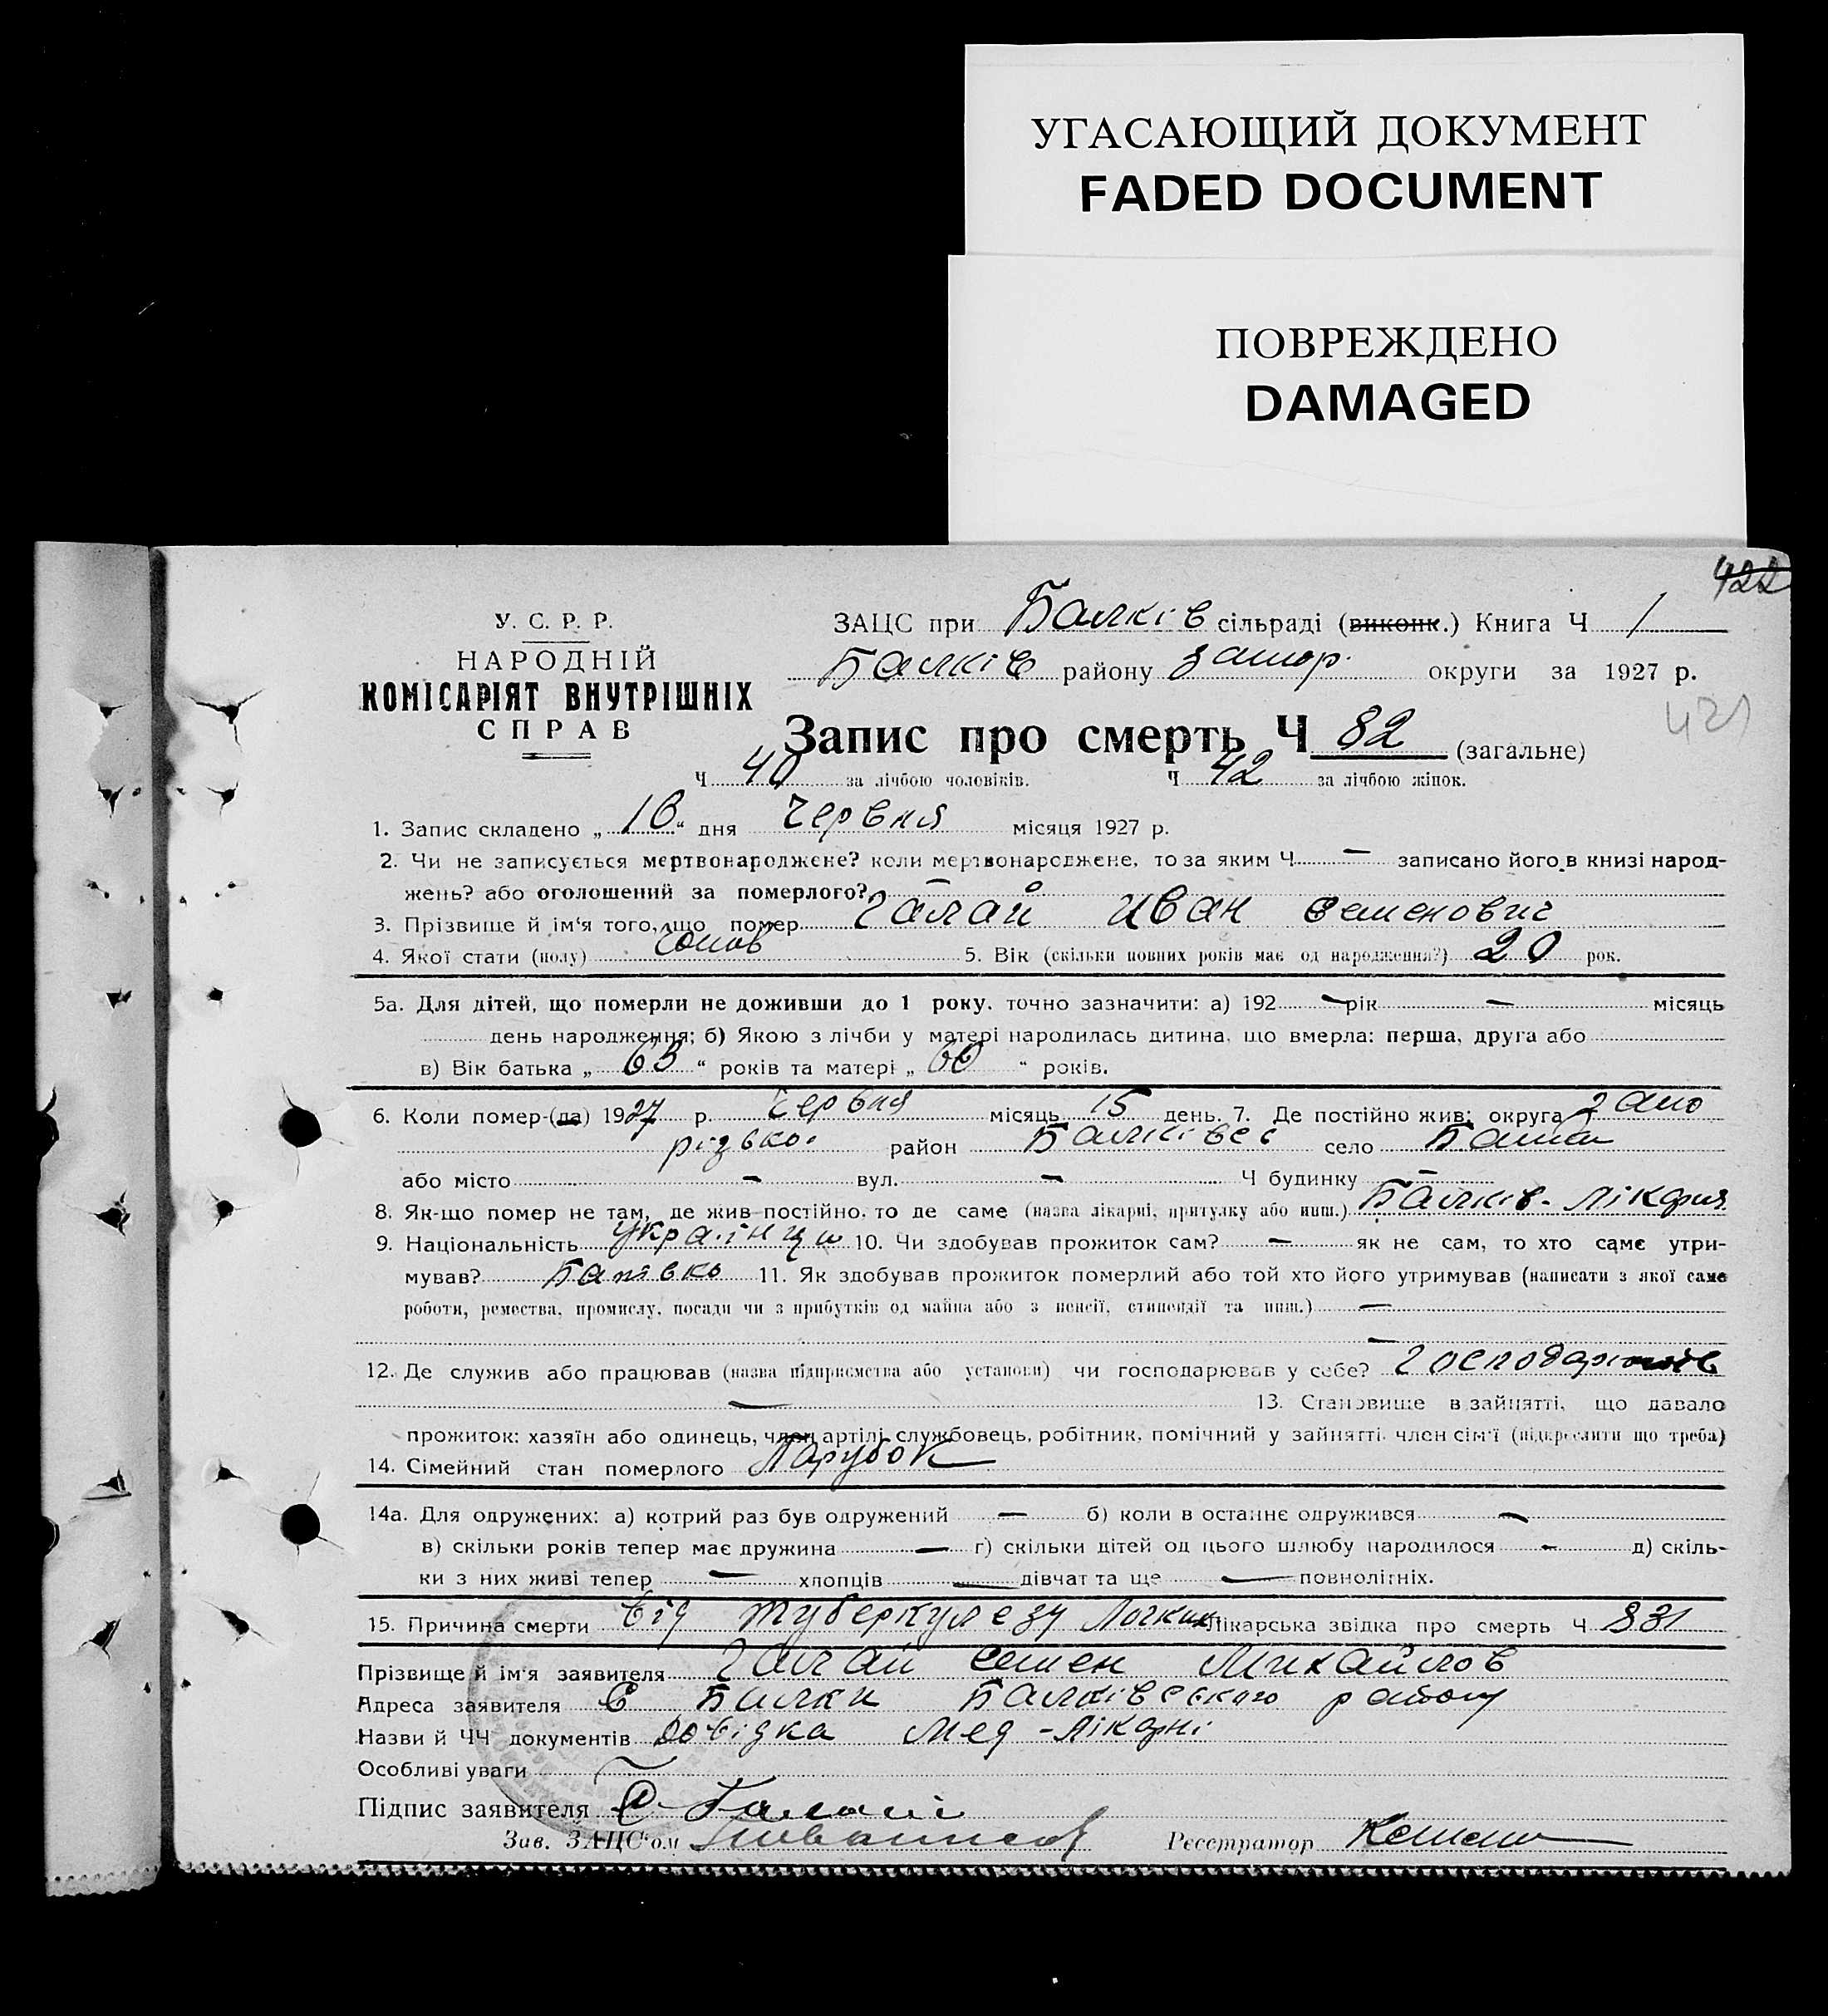 УГАСАЮЩИЙ ДОКУМЕНТ
FADED DOCUMENT
ПОВРЕЖДЕНО
DAMAGED
422
У. С. Р. Р.
НАРОДНІЙ
КОМІСАРІЯТ ВНУТРІШНІХ
СПРАВ
ЗАЦС при Балків сільраді (виконк.) Книга Ч 1
Балків району Запор. округи за 1927 р.
421
Запис про смерть Ч 82 (загальне)
Ч 40 за лічбою чоловіків. Ч 42 за лічбою жінок.
1. Запис складено „ 16 “ дня Червня місяця 1927 р.
2. Чи не записується мертвонароджене? коли мертвонароджене, то за яким Ч — записано його в книзі народ-
жень? або оголошений за померлого? —
3. Прізвище й ім‘я того, що помер Галай Иван Семенович
4. Якої стати (полу) 5. Вік (скільки повних років має од народження?) 20 рок.
5а. Для дітей, що померли не доживши до 1 року. точно зазначити: а) 192 — рік — місяць
день народження; б) Якою з лічби у матері народилась дитина, що вмерла: перша, друга або
в) Вік батька „ 63 “ років та матері „ 60 “ років.
6. Коли помер-(ла) 1927 р. Червня місяць 15 день. 7. Де постійно жив: округа Запо
різької район Балківс село Балки
або місто — вул. — Ч будинку —
8. Як-що помер не там, де жив постійно, то де саме (назва лікарні, притулку або инш.) Балків-лікарня
9. Національність 10. Чи здобував прожиток сам? — як не сам, то хто саме утри-
мував? Батько 11. Як здобував прожиток померлий або той хто його утримував (написати з якої саме
роботи, ремества, промислу, посади чи з прибутків од майна або з пенсії, стипендії та инш.) —
—
12. Де служив або працював (назва підприємства або установи) чи господарював у себе?
— 13. Становище в зайнятті, що давало
прожиток: хазяїн або одинець, член артілі, службовець, робітник, помічний у зайнятті член сім‘ї (підкреслити що треба)
14. Сімейний стан померлого Парубок
14а. Для одружених: а) котрий раз був одружений — б) коли в останнє одружився —
в) скільки років тепер має дружина — г) скільки дітей од цього шлюбу народилося — д) скіль-
ки з них живі тепер — хлопців — дівчат та ще — повнолітніх.
15. Причина смерти Від туберкулезу Лікарська звідка про смерть Ч 831
Прізвище й ім‘я заявителя Галай Семен Михайлов
Адреса заявителя С Балки Балківського району
Назви й ЧЧ документів Довідка Мед-лікарні
Особливі уваги
Підпис заявителя С. Галай
Зав. ЗАЦС‘ом
Реєстратор